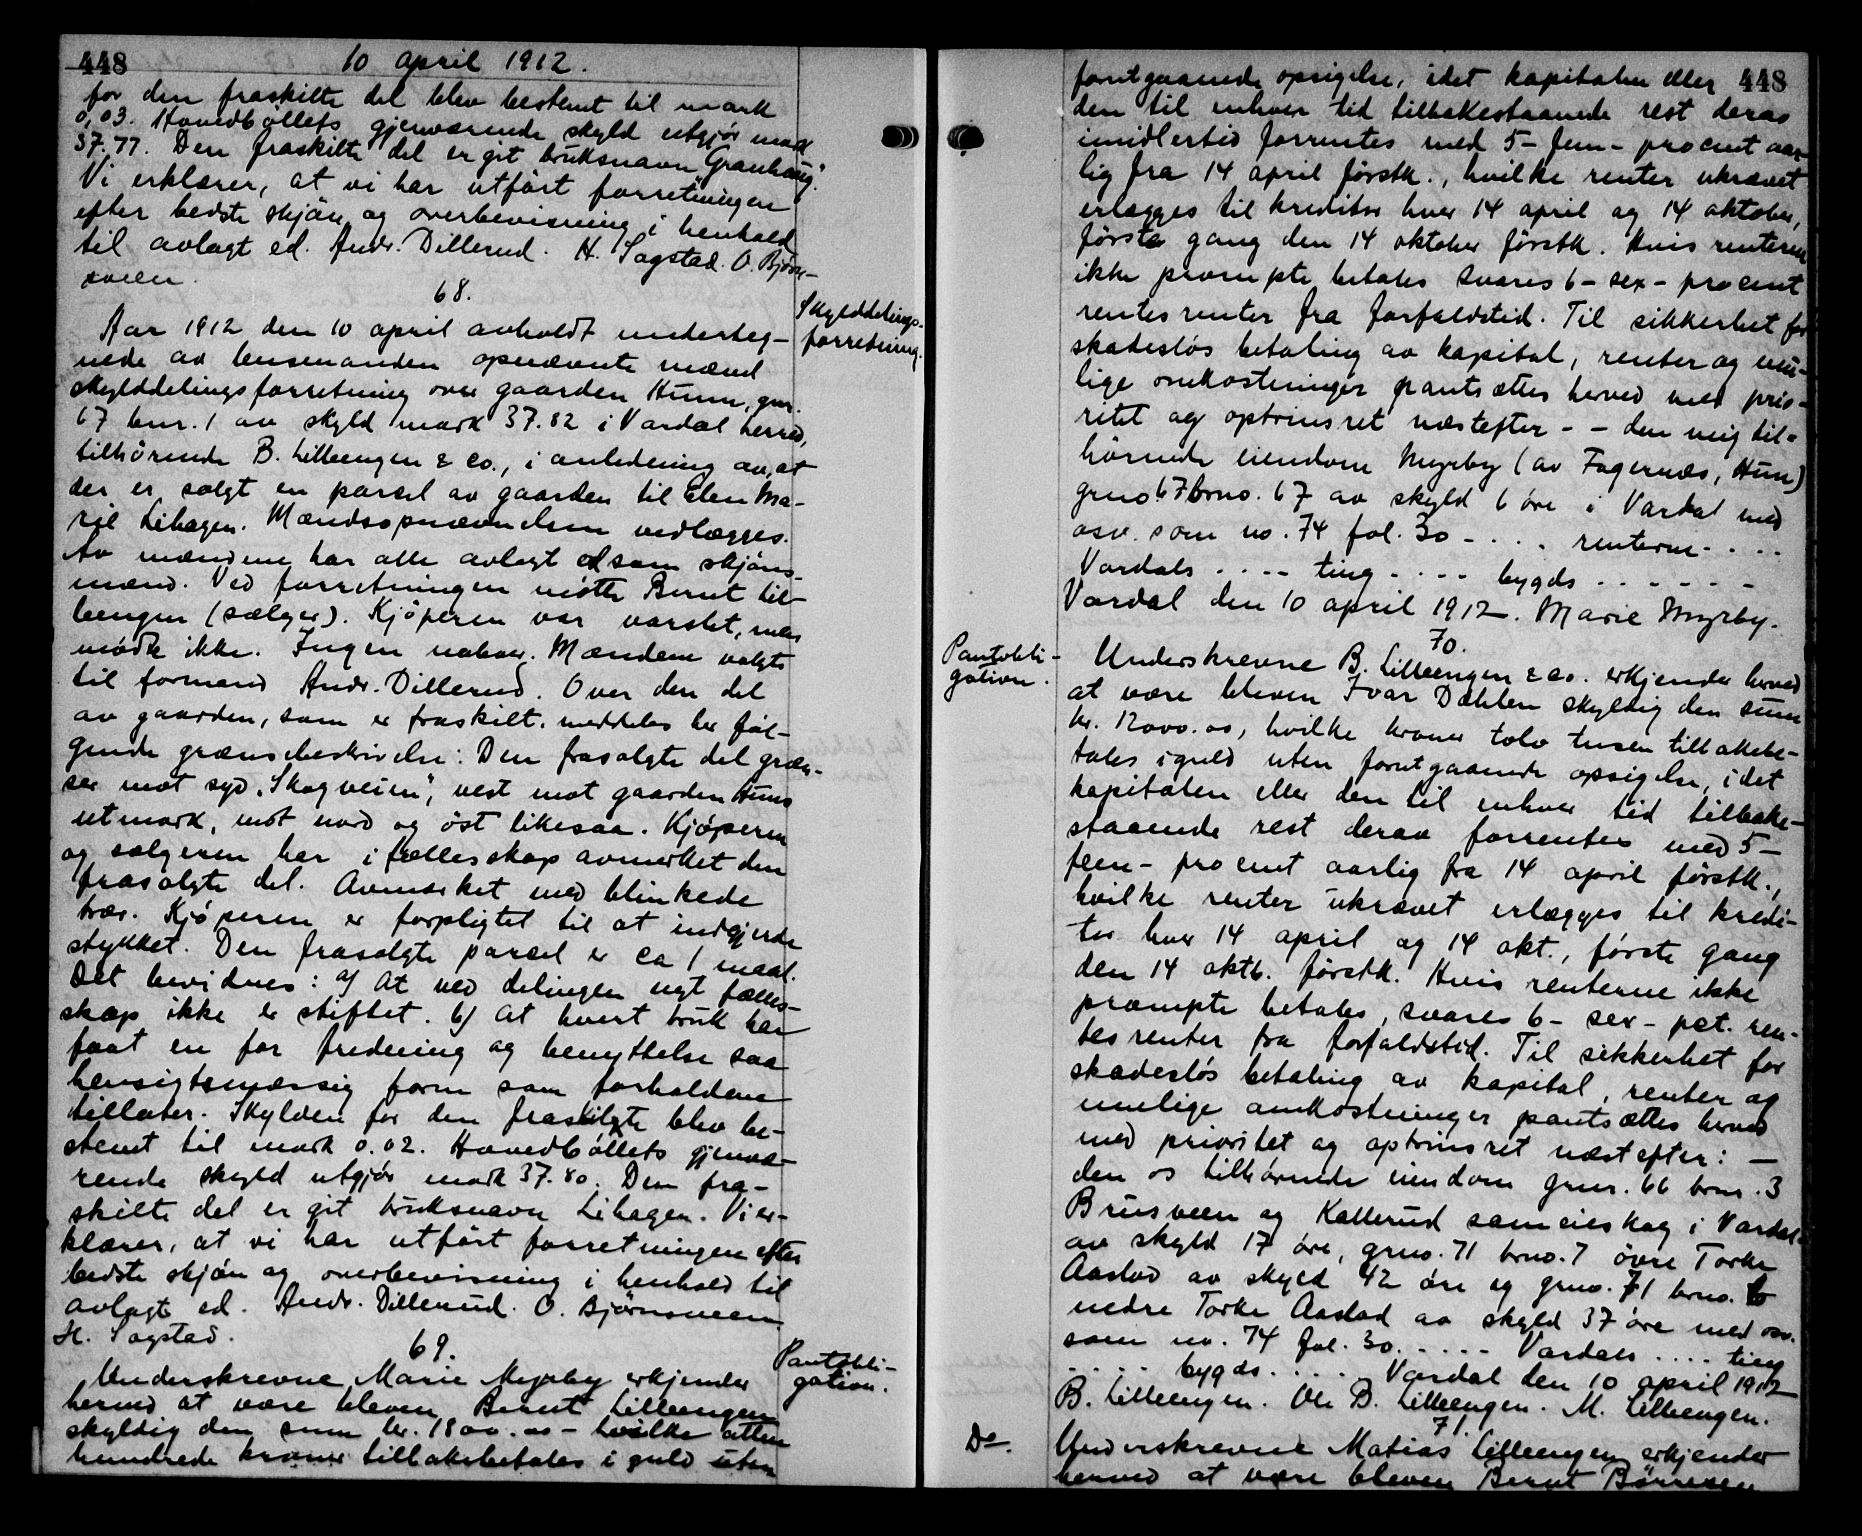 448
10 april 1912.
for den fraskilte del blev bestemt til mark
0,03. Hovedbøllets gjenværende skyld utgjør mark
37.77. Den fraskilte del er git bruksnavn "Granhaug".
Vi erklærer, at vi har utført forretningen
efter bedste skjøn og overbevisning i henhold
til avlagt ed. Andr. Dillerud. H. Sagstad. O. Bjørn-
sveen.
68.
Skylddelings-
forretning.
Aar 1912 den 10 april avholdt underteg-
nede av lensmanden opnævnte mænd
skylddelingsforretning over gaarden Hunn, gnr.
67 bnr. 1 av skyld mark 37.82 i Vardal herred,
tilhørende B. Lilleengen & co., i anledning av, at
der er solgt en parsel av gaarden til Elen Ma-
rie Lihagen. Mændsopnævnelsen vedlægges.
Av mændene har alle avlagt ed som skjøns-
mænd. Ved forretningen møtte Bernt Lil-
leengen (sælger). Kjøperen var varslet, men
mødte ikke. Ingen naboer. Mændene valgte
til formand Andr. Dillerud. Over den del
av gaarden, som er fraskilt, meddeles her føl-
gende grænsebeskrivelse: Den frasolgte del græn-
ser mot syd "Skogveien", vest mot gaarden Huns
utmark, mot nord og øst likesaa. Kjøperen
og sælgeren har i fællesskap avmerket den
frasolgte del. Avmerket med blinkede
trær. Kjøperen er forpligtet til at indgjerde
stykket. Den frasolgte parsel er ca 1 maal.
Det bevidnes: a/ At ved delingen nyt fælles-
skap ikke er stiftet. b/ At hvert bruk har
faat en for fredning og benyttelse saa
hensigtsmæssig form som forholdene
tillater. Skylden for den fraskilte blev be-
stemt til mark 0.02. Hovedbøllets gjenvæ-
rende skyld utgjør mark 37.80. Den fra-
skilte del er git bruksnavn Lihagen. Vi er-
klærer, at vi har utført forretningen efter
bedste skjøn og overbevisning i henhold til
avlagt ed. Andr. Dillerud. O. Bjørnsveen.
H. Sagstad.
69.
Pantobli-
gation.
Underskrevne Marie Myrby erkjender
herved at være bleven Bernt Lilleengen
skyldig den sum kr. 1800.00 – hvilke atten
hundrede kroner tilbakebetales i guld uten
448
forutgaaende opsigelse, idet kapitalen eller
den til enhver tid tilbakestaaende rest derav
imidlertid forrentes med 5 – fem – procent aar-
lig fra 14 april førstk., hvilke renter ukrævet
erlægges til kreditor hver 14 april og 14 oktober,
første gang den 14 oktober førstk. Hvis renterne
ikke prompte betales svares 6 – sex – procent
rentesrenter fra forfaldstid. Til sikkerhet for
skadesløs betaling av kapital, renter og mu-
lige omkostninger pantsættes herved med prio-
ritet og optrinsret næstefter - - den mig til-
hørende eiendom Myrby (av Fagernæs, Hun)
grno 67 brno. 67 av skyld 6 øre i Vardal med
osv. som no. 74 fol. 30 - . . . renterne - . . .
Vardals . . . - ting . . - - bygds . . - - - -
Vardal den 10 april 1912. Marie Myrby.
70.
Pantobli-
gation.
Underskrevne B. Lilleengen & co. erkjender herved
at være bleven Ivar Dæhlen skyldig den sum
kr. 12000.00, hvilke kroner tolv tusen tilbakebe-
tales i guld uten forutgaaende opsigelse, idet
kapitalen eller den til enhver tid tilbake-
staaende rest derav forrentes med 5 –
fem – procent aarlig fra 14 april førstk.,
hvilke renter ukrævet erlægges til kredi-
tor hver 14 april og 14 okt., første gang
den 14 oktb. førstk. Hvis renterne ikke
prompte betales, svares 6 – sex – pct. ren-
tesrenter fra forfaldstid. Til sikkerhet for
skadesløs betaling av kapital, renter og
mulige omkostninger pantsættes herved
med prioritet og optrinsret næstefter: –
den os tilhørende eiendom gnr. 66 bnr. 3
Brusveen og Kallerud sameieskog i Vardal
av skyld 17 øre, grno. 71 brno. 7 øvre Torke
Aastad av skyld 42 øre og grno. 71 brno.
nedre Torke Aastad av skyld 37 øre med osv.
som no. 74 fol. 30. . . - - Vardals . . . . ting
. . - . . bygds . . . . Vardal den 10 april 1912
B. Lilleengen. Ole B. Lilleengen. M. Lilleengen.
71.
Do.
Underskrevne Matias Lilleengen erkjender
herved at være bleven Bernt Børresen